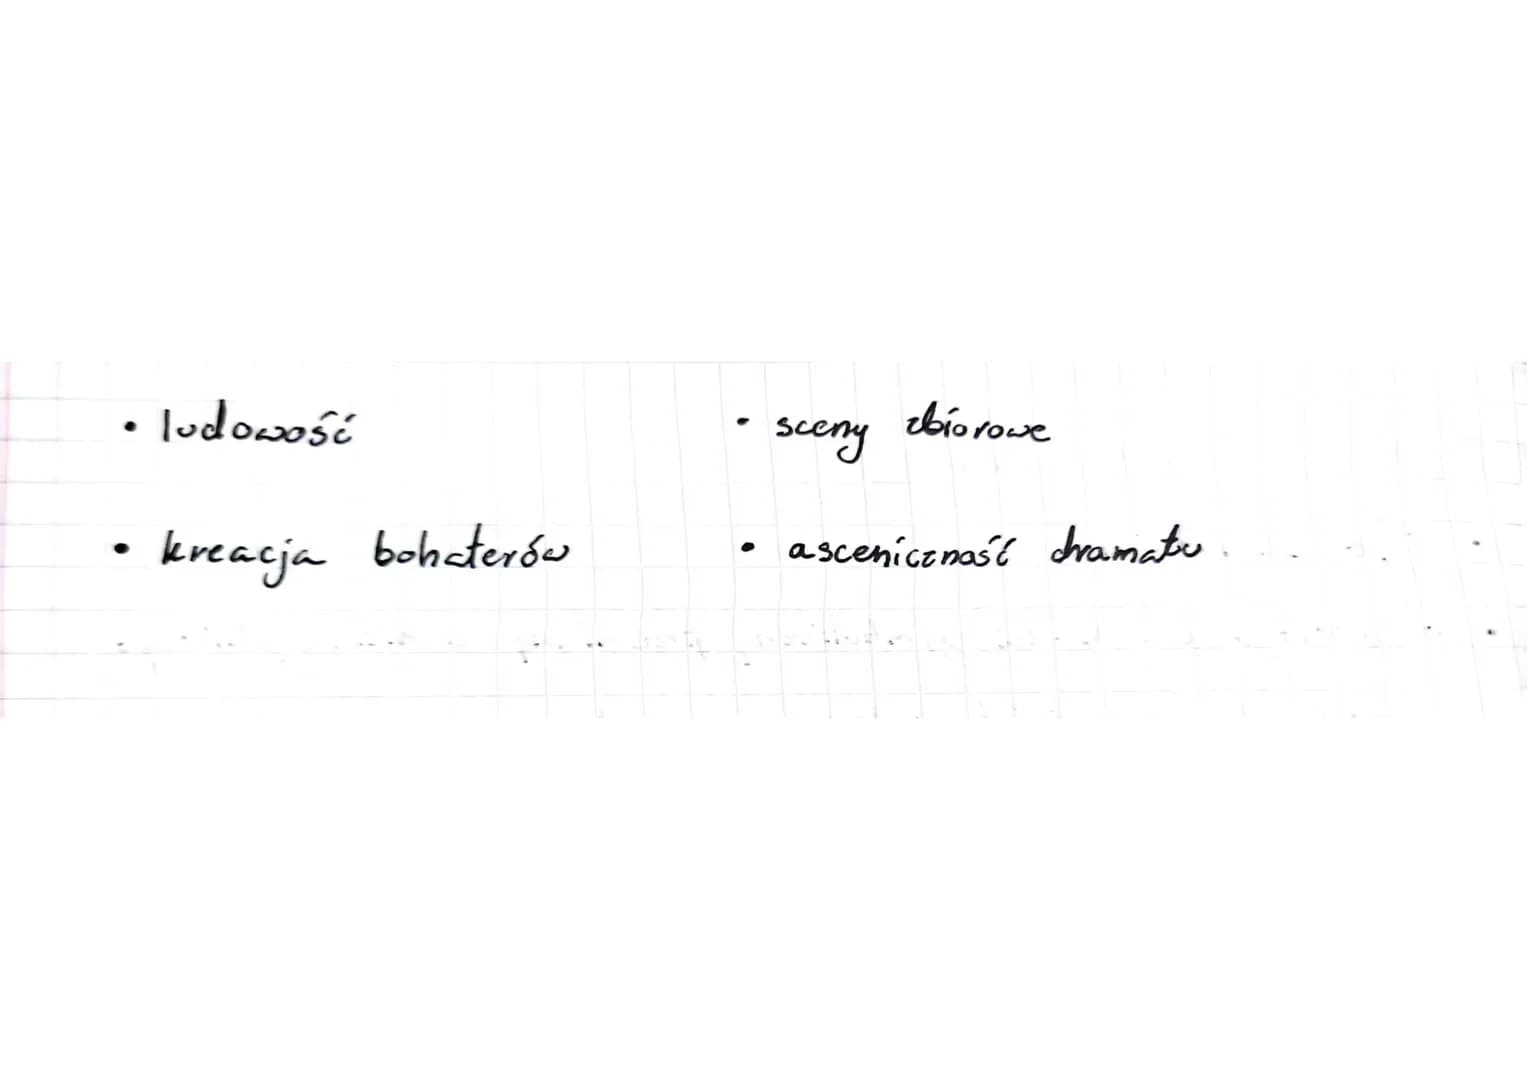 • ludowość
• sceny zbiorowe
• kreacja bohaterów
• asceniczność dramatu